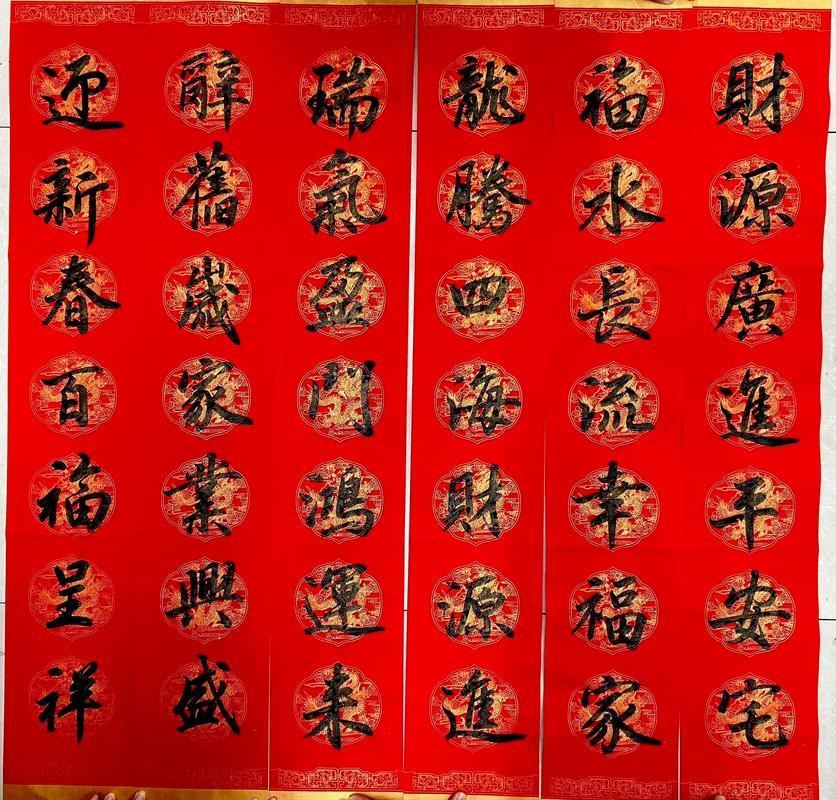 財源廣進平安宅
福水長流幸福家
龍騰四海財源進
瑞氣盈門鴻運来
辭舊歲家業興盛
迎新春百福呈祥